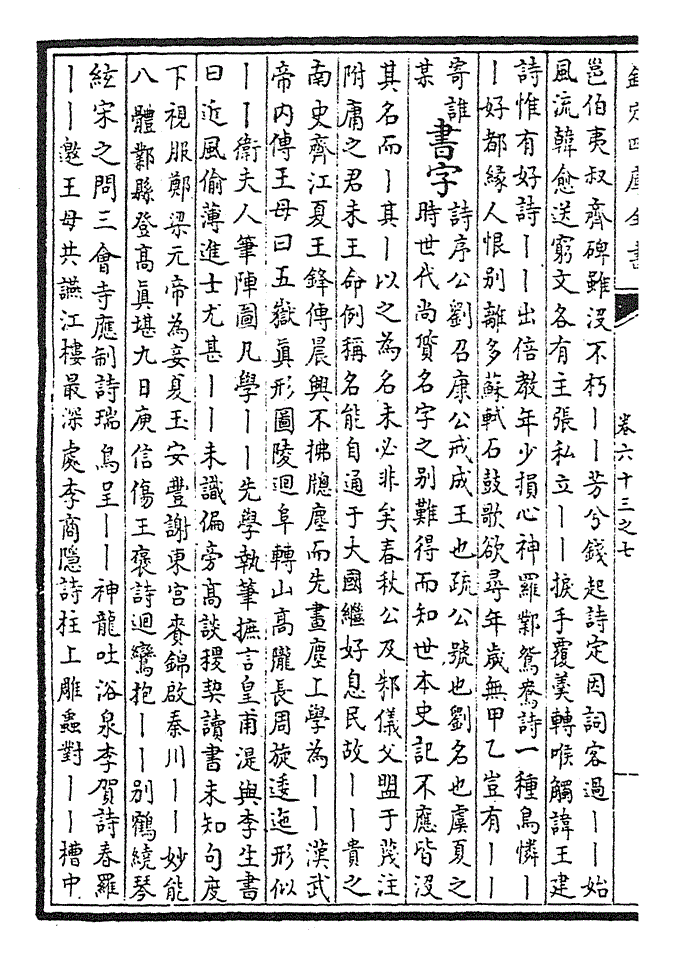 欽定四庫全書
卷六十三之七
邕伯夷叔齊碑雖沒不朽丨丨芳兮錢起詩定因詞客過丨丨始
風流韓愈送窮文各有主張私立丨丨捩手覆羹轉喉觸諱王建
詩惟有好詩丨丨出倍教年少損心神羅鄴鴛鴦詩一種鳥憐丨
丨好都緣人恨别離多蘇軾石鼓歌欲尋年歲無甲乙豈有丨丨
寄誰某
書字
詩序公劉召康公戒成王也疏公號也劉名也虞夏之
時世代尚質名字之别難得而知世本史記不應皆沒
其名而丨其丨以之為名未必非矣春秋公及邾儀父盟于蔑注
附庸之君未王命例稱名能自通于大國繼好息民故丨丨貴之
南史齊江夏王鋒傳晨興不拂牕塵而先畫塵上學為丨丨漢武
帝内傳王母曰五嶽真形圖陵迴阜轉山高隴長周旋逶迤形似
丨丨衛夫人筆陣圖凡學丨丨先學執筆摭言皇甫湜與李生書
曰近風偷薄進士尤甚丨丨未識偏旁高談稷契讀書未知句度
下視服鄭梁元帝為妾夏王安豐謝東宫賚錦啟秦川丨丨妙能
八體鄴縣登高真堪九日庾信傷王褒詩迴鸞抱丨丨别鶴繞琴
絃宋之問三會寺應制詩瑞鳥呈丨丨神龍吐浴泉李賀詩春羅
丨丨邀王母共讌江樓最深處李商隱詩柱上雕蟲對丨丨槽中